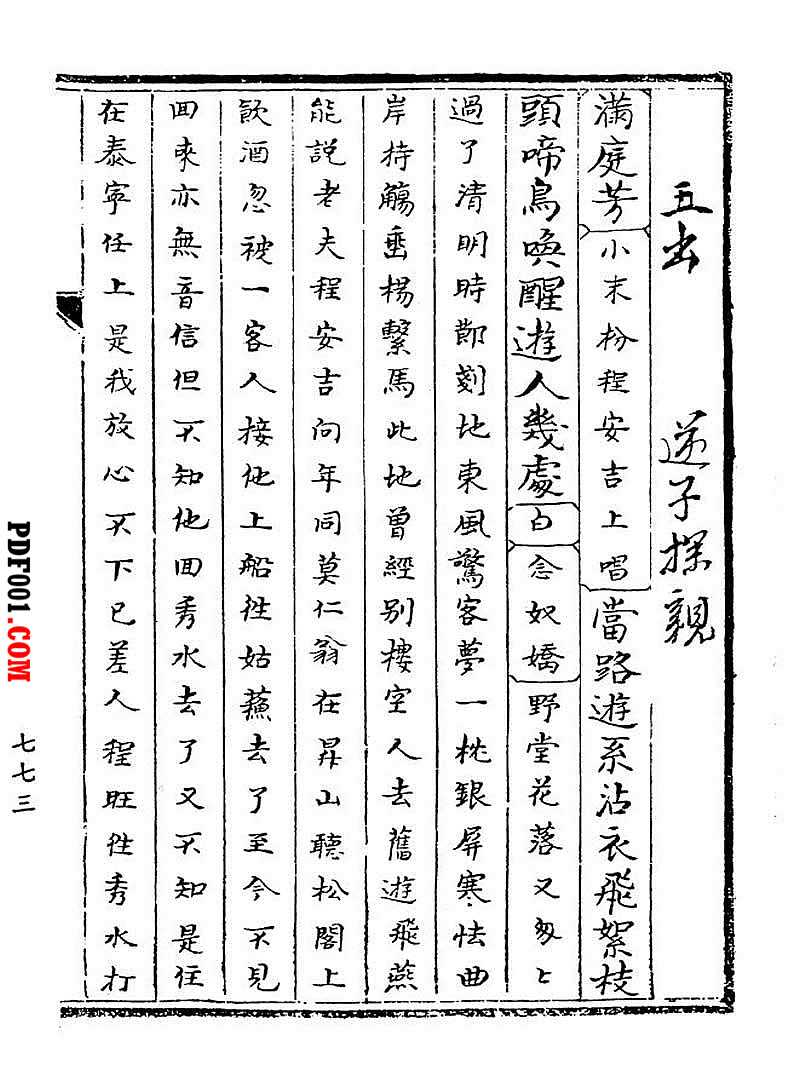 五出 逆子探親
滿庭芳小末粉程安吉上唱當路遊糸沾衣飛絮枝
頭啼鳥喚醒遊人幾處白念奴嬌野堂花落又匆匕
過了清明時節剗地東風驚客夢一枕銀屏寒怯曲
岸持觴垂楊繫馬此地曾經別樓空人去舊遊飛燕
能説老夫程安吉向年同莫仁翁在昇山聽松閣上
飲酒忽被一客人接他上船徃姑蘓去了至今不見
回來亦無音信但不知他回秀水去了又不知是住
在泰寧任上是我放心不下已差人程旺徃秀水打
七七三
PDF001.COM